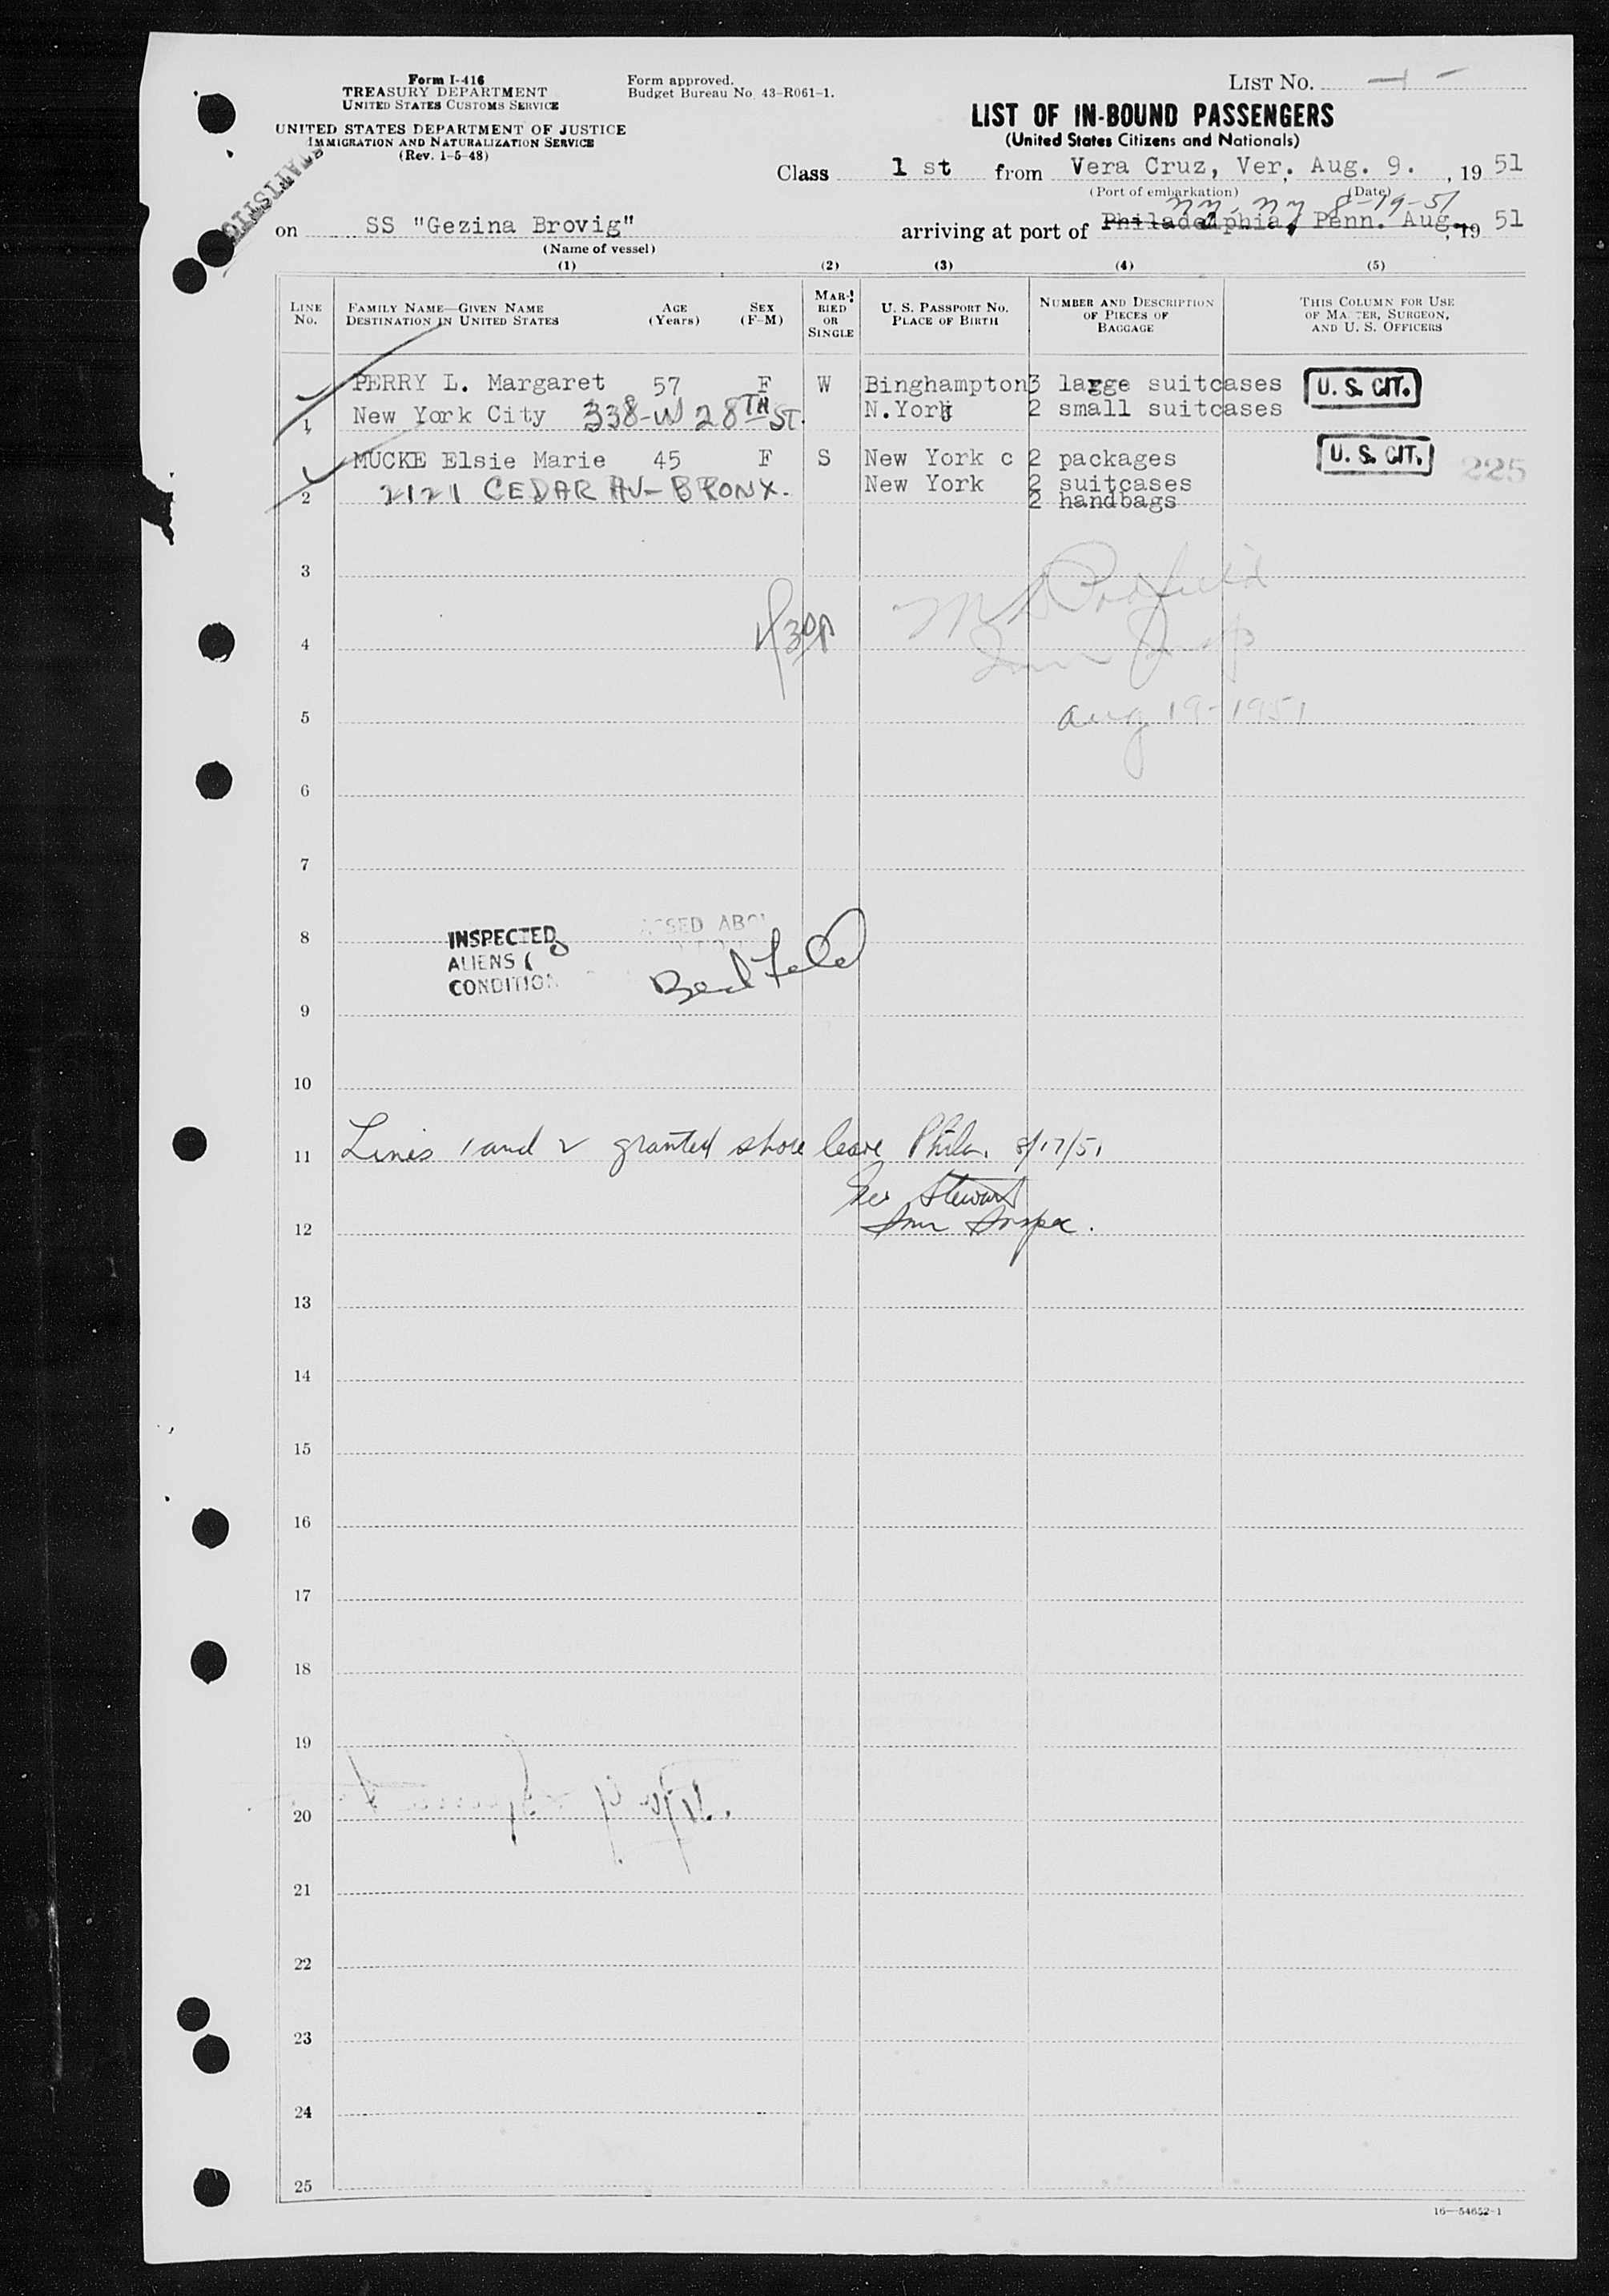 Form I-416
TREASURY DEPARTMENT
UNITED STATES CUSTOMS SERVICE
UNITED STATES DEPARTMENT OF JUSTICE
IMMIGRATION AND NATURALIZATION SERVICE
(Rev. 1-5-48)
Form approved.
Budget Bureau No. 43-R061-1.
LIST NO.
LIST OF IN-BOUND PASSENGERS
(United States Citizens and Nationals)
Class 1 st from Vera Cruz, Ver. Aug. 9. , 19 51
(Port of embarkation) (Date)
NY-NY 8-19-51
on SS "Gezina Brovig" arriving at port of Philadelphia, Penn. Aug. , 19 51
(Name of vessel)
(1) (2) (3) (4) (5)
LINE NO.
FAMILY NAME—GIVEN NAME
DESTINATION IN UNITED STATES
AGE (Years)
SEX (F-M)
MARRIED OR SINGLE
U. S. PASSPORT NO.
PLACE OF BIRTH
NUMBER AND DESCRIPTION
OF PIECES OF
BAGGAGE
THIS COLUMN FOR USE
OF MASTER, SURGEON,
AND U. S. OFFICERS
PERRY L. Margaret 57 F W Binghampton 3 large suitcases U. S. CIT.
1 New York City 338-W 28TH ST. N.York 2 small suitcases
MUCKE Elsie Marie 45 F S New York c 2 packages U. S. CIT. 225
2 2121 CEDAR AV-BRONX. New York 2 suitcases
2 handbags
3
4
5 Aug 19-1951
6
7
8 INSPECTED
ALIENS
CONDITION
9
10
11 Lines 1 and 2 granted shore leave Phila. 8/17/51
Stewart
12 Imm Inspec.
13
14
15
16
17
18
19
20
21
22
23
24
25
16—54652-1